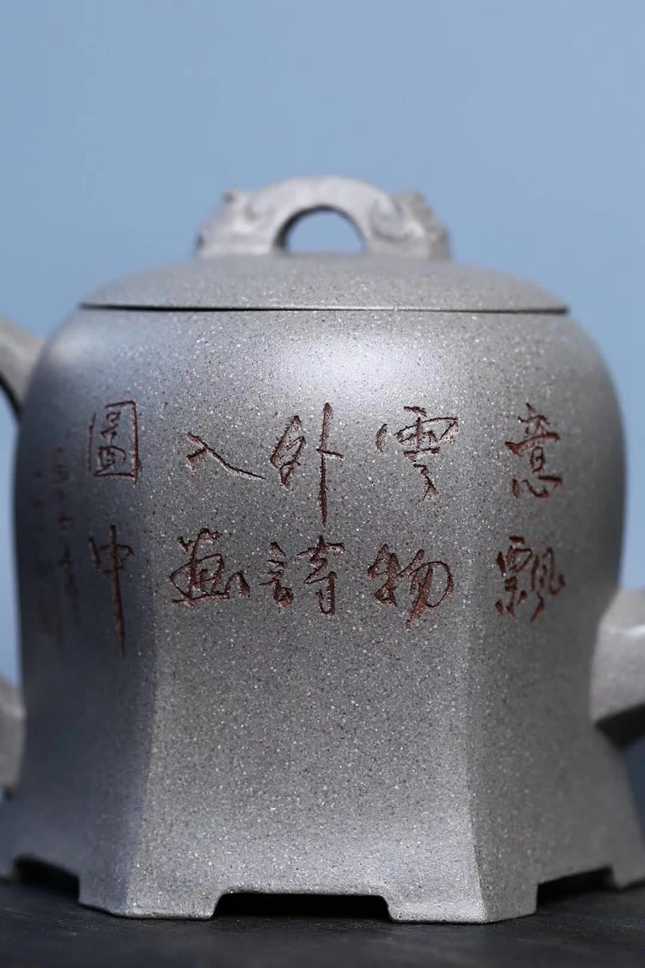 意飄
雲物
外詩
入畫
圖中